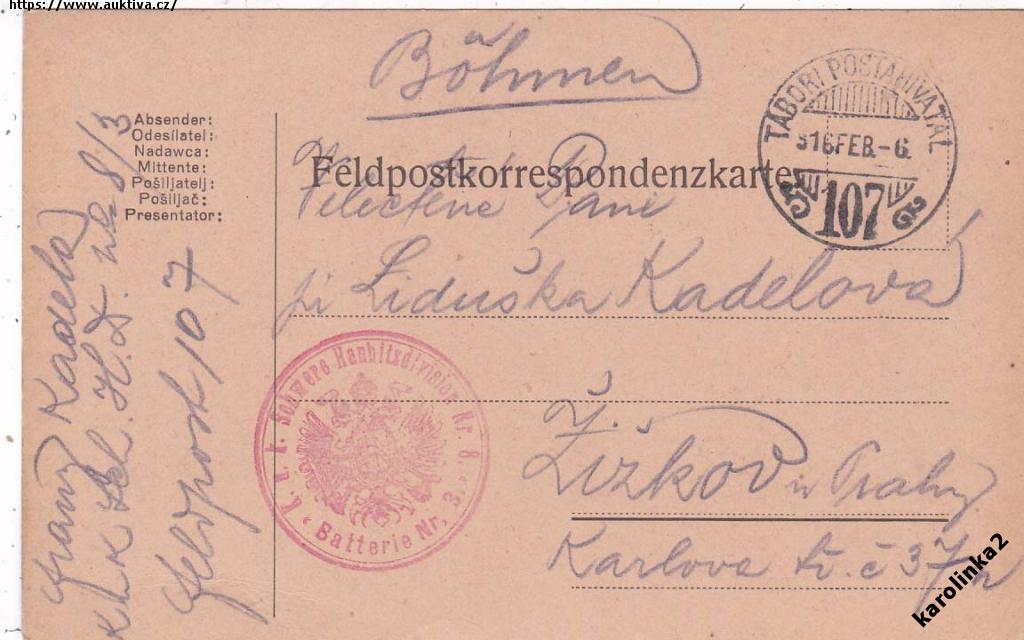 https://www.auktiva.cz/
Böhmen
Absender:
Odesílatel:
Nadawca:
Mittente:
Pošiljatelj:
Pošiljač:
Presentator:
Feldpostkorrespondenzkarte
TÁBORI POSTAHIVATAL
916 FEB.-6.
107
Velectěné Paní
pí Liduška Kadelova
Žižkov u Prahy
Karlova tř. č 37
Franz Kadela
k u k H.D. No 8/3
Feldpost 107
k. u. k. Schwere Haubitzdivision Nr. 8.
Batterie Nr. 3.
karolinka2